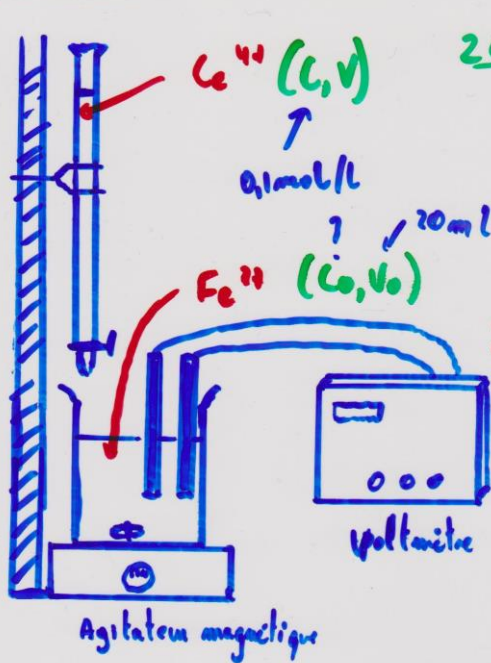 Ce⁴⁺ (C, V)
0,1 mol/l
? 20 ml
Fe²⁺ (C₀, V₀)
Voltmètre
Agitateur magnétique